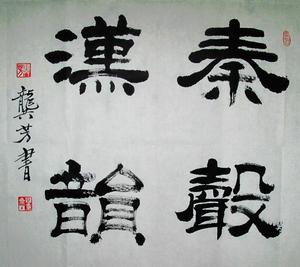 秦聲
漢韻
龔芳書